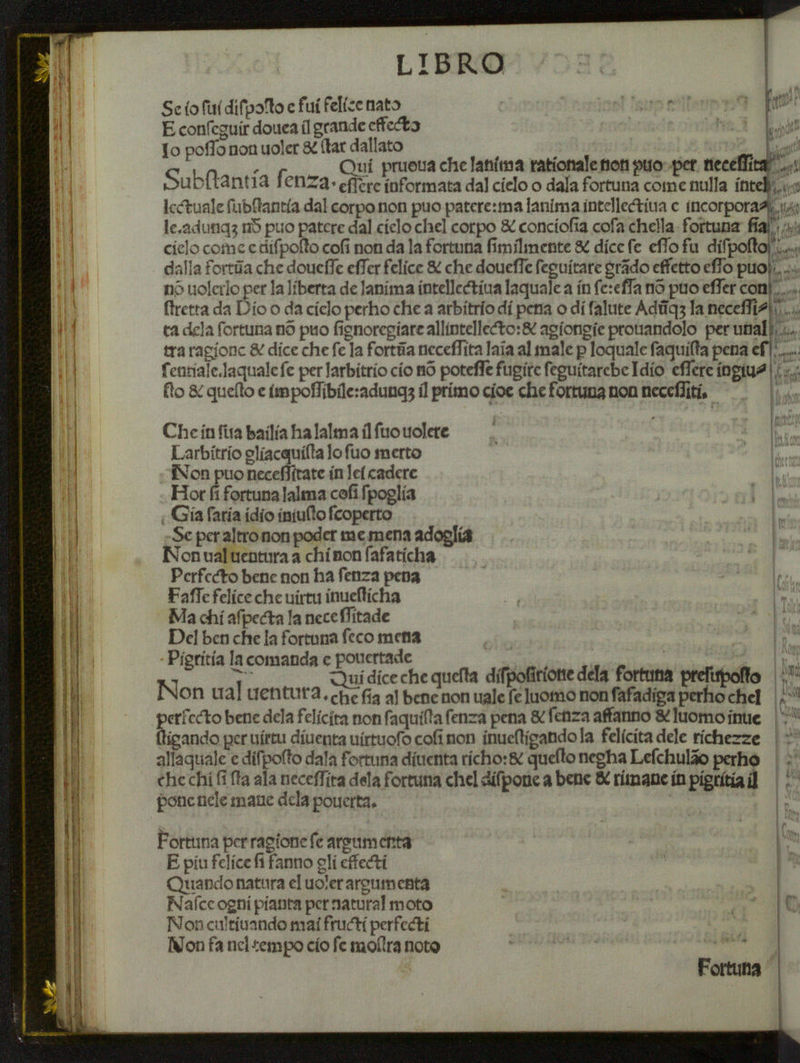 LIBRO
Se io fui disposto e fui felice nato
E conseguir douea il grande effecto
Io posso non uoler & star dallato
Substantia senza. Qui prueua che lanima rationale non puo per necessita
essere informata dal cielo o dala fortuna come nulla intel
lectuale substantia dal corpo non puo patere:ma lanima intellectiua e incorpora
le.adunqꝫ nō puo patere dal cielo chel corpo & conciosia cosa chella fortuna sia
cielo come e disposto cosi non da la fortuna similmente & dice se esso fu disposto
dalla fortūa che douesse esser felice & che douesse seguitare grādo effetto esso puo
nō uolerlo per la liberta de lanima intellectiua laquale a in se:essa nō puo esser con
stretta da Dio o da cielo perho che a arbitrio di pena o di salute Adūqꝫ la necessi
ta dela fortuna nō puo signoregiare allintellecto:& agiongie prouandolo per unal
tra ragione & dice che se la fortūa necessita laia al male p loquale saquista pena es
sentiale.laquale se per larbitrio cio nō potesse fugire seguitarebe Idio essere ingiu
sto & questo e impossibile:adunqꝫ il primo cioe che fortuna non necessiti.
Che in sua bailia ha lalma il suo uolere
Larbitrio gliacquista lo suo merto
Non puo necessitate in lei cadere
Hor si fortuna lalma cosi spoglia
Gia saria idio iniusto scoperto
Se per altro non poder me mena adoglia
Non ual uentura a chi non safaticha
Perfecto bene non ha senza pena
Fasse felice che uirtu inuesticha
Ma chi aspecta la necessitade
Del ben che la fortuna seco mena
Pigritia la comanda e pouertade
Non ual uentura. Qui dice che questa dispositione dela fortuna presuposto
che sia al bene non uale se luomo non safadiga perho chel
perfecto bene dela felicita non saquista senza pena & senza affanno & luomo inue
stigando per uirtu diuenta uirtuoso cosi non inuestigando la felicita dele richezze
allaquale e disposto dala fortuna diuenta richo:& questo negha Leschulāo perho
che chi si sta ala necessita dela fortuna chel dispone a bene & rimane in pigritia il
pone nele mane dela pouerta.
Fortuna per ragione se argumenta
E piu felice si fanno gli effecti
Quando natura el uoler argumenta
Nasce ogni pianta per natural moto
Non cultiuando mai fructi perfecti
Non fa nel tempo cio se mostra noto
Fortuna